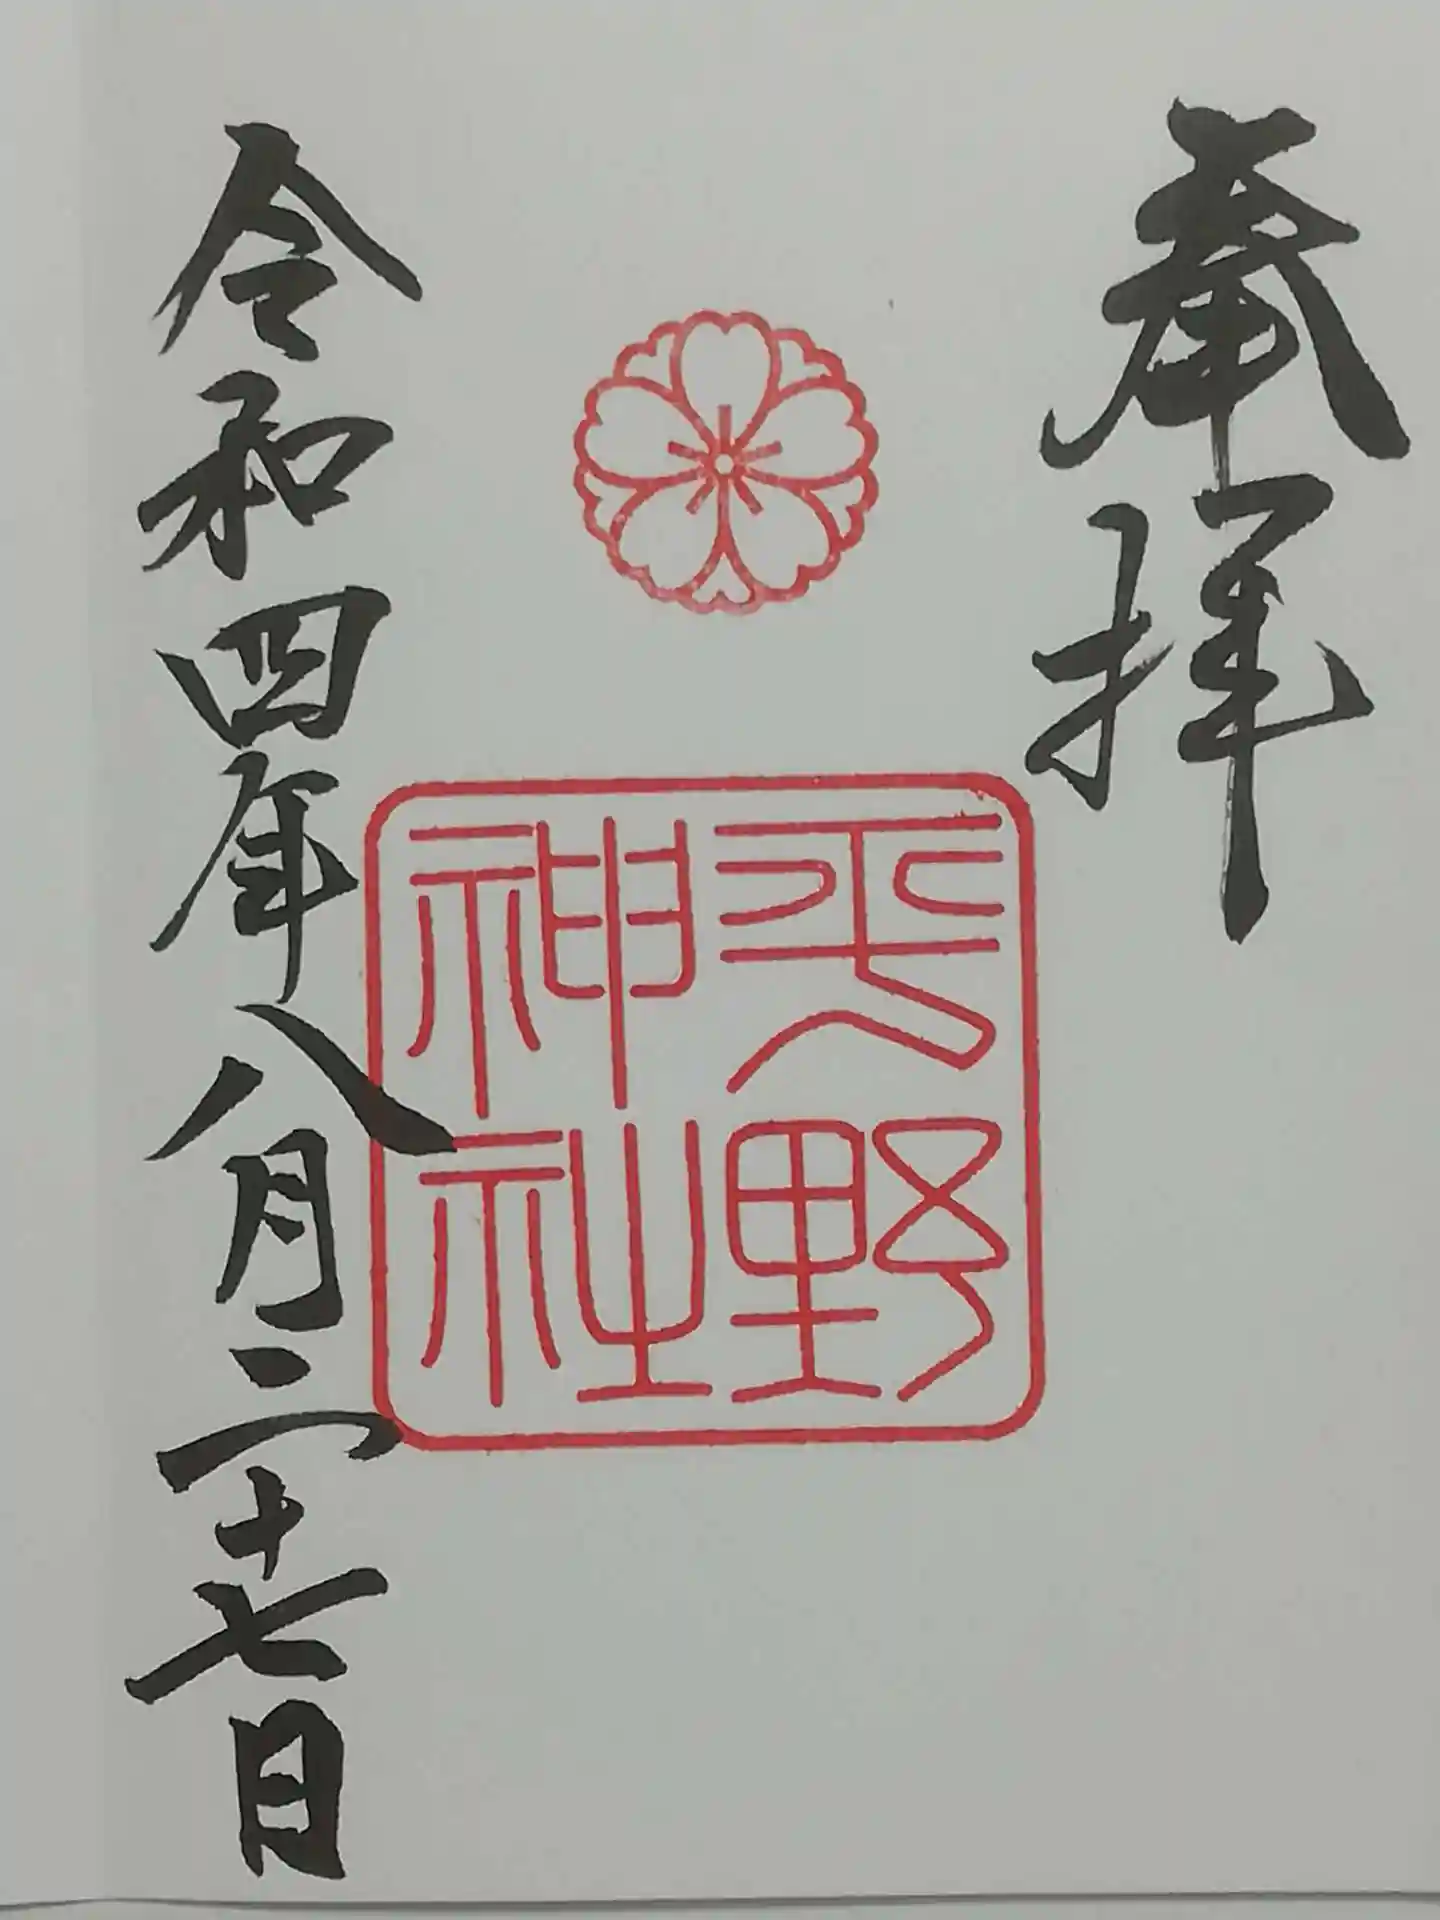 奉拝
平野神社
令和四年八月二十七日